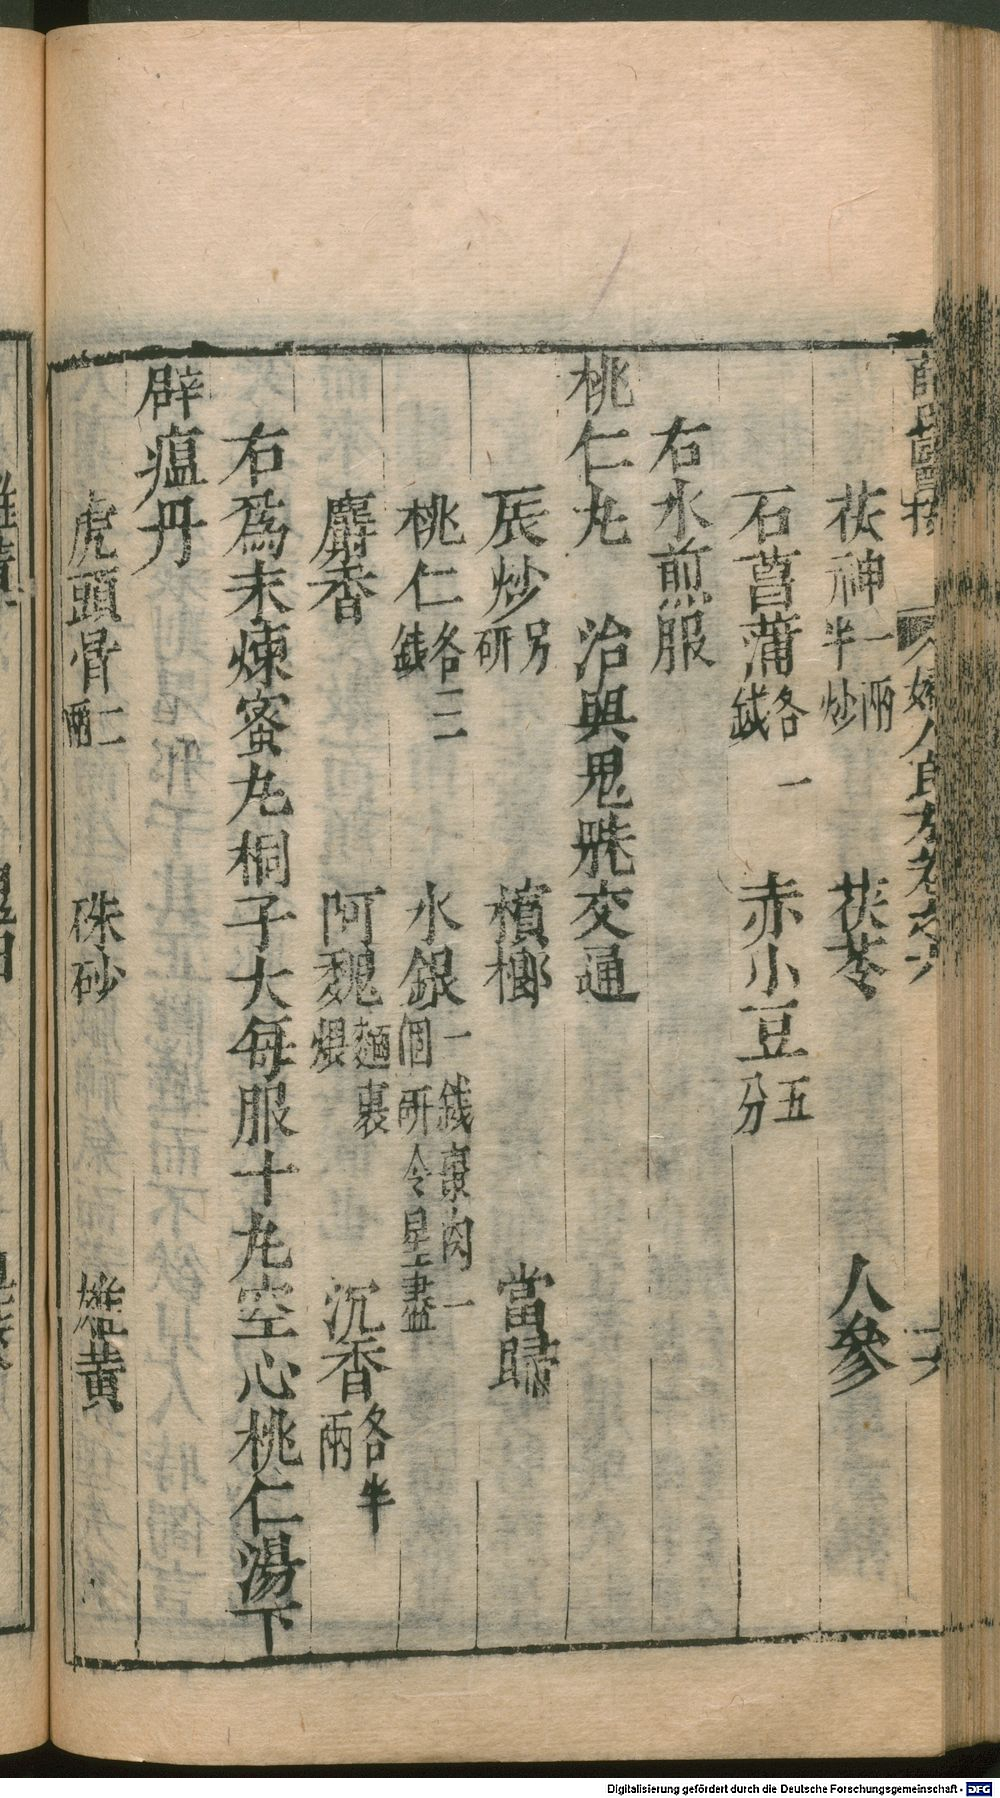 茯神一兩半炒　茯苓　人參
石菖蒲各一錢　赤小豆五分
右水煎服
桃仁丸　治與鬼胱交通
辰炒另研　檳榔　當歸
桃仁各三錢　水銀一錢棗肉一個研令星盡
麝香　阿魏麵裹煨　沉香各半兩
右爲末煉蜜丸桐子大每服十丸空心桃仁湯下
辟瘟丹
虎頭骨二兩　硃砂　雄黃
Digitalisierung gefördert durch die Deutsche Forschungsgemeinschaft - DFG